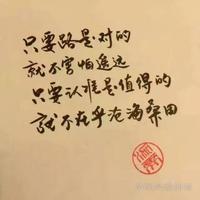 只要路是对的
就不害怕遥远
只要认准是值得的
就不在乎沧海桑田